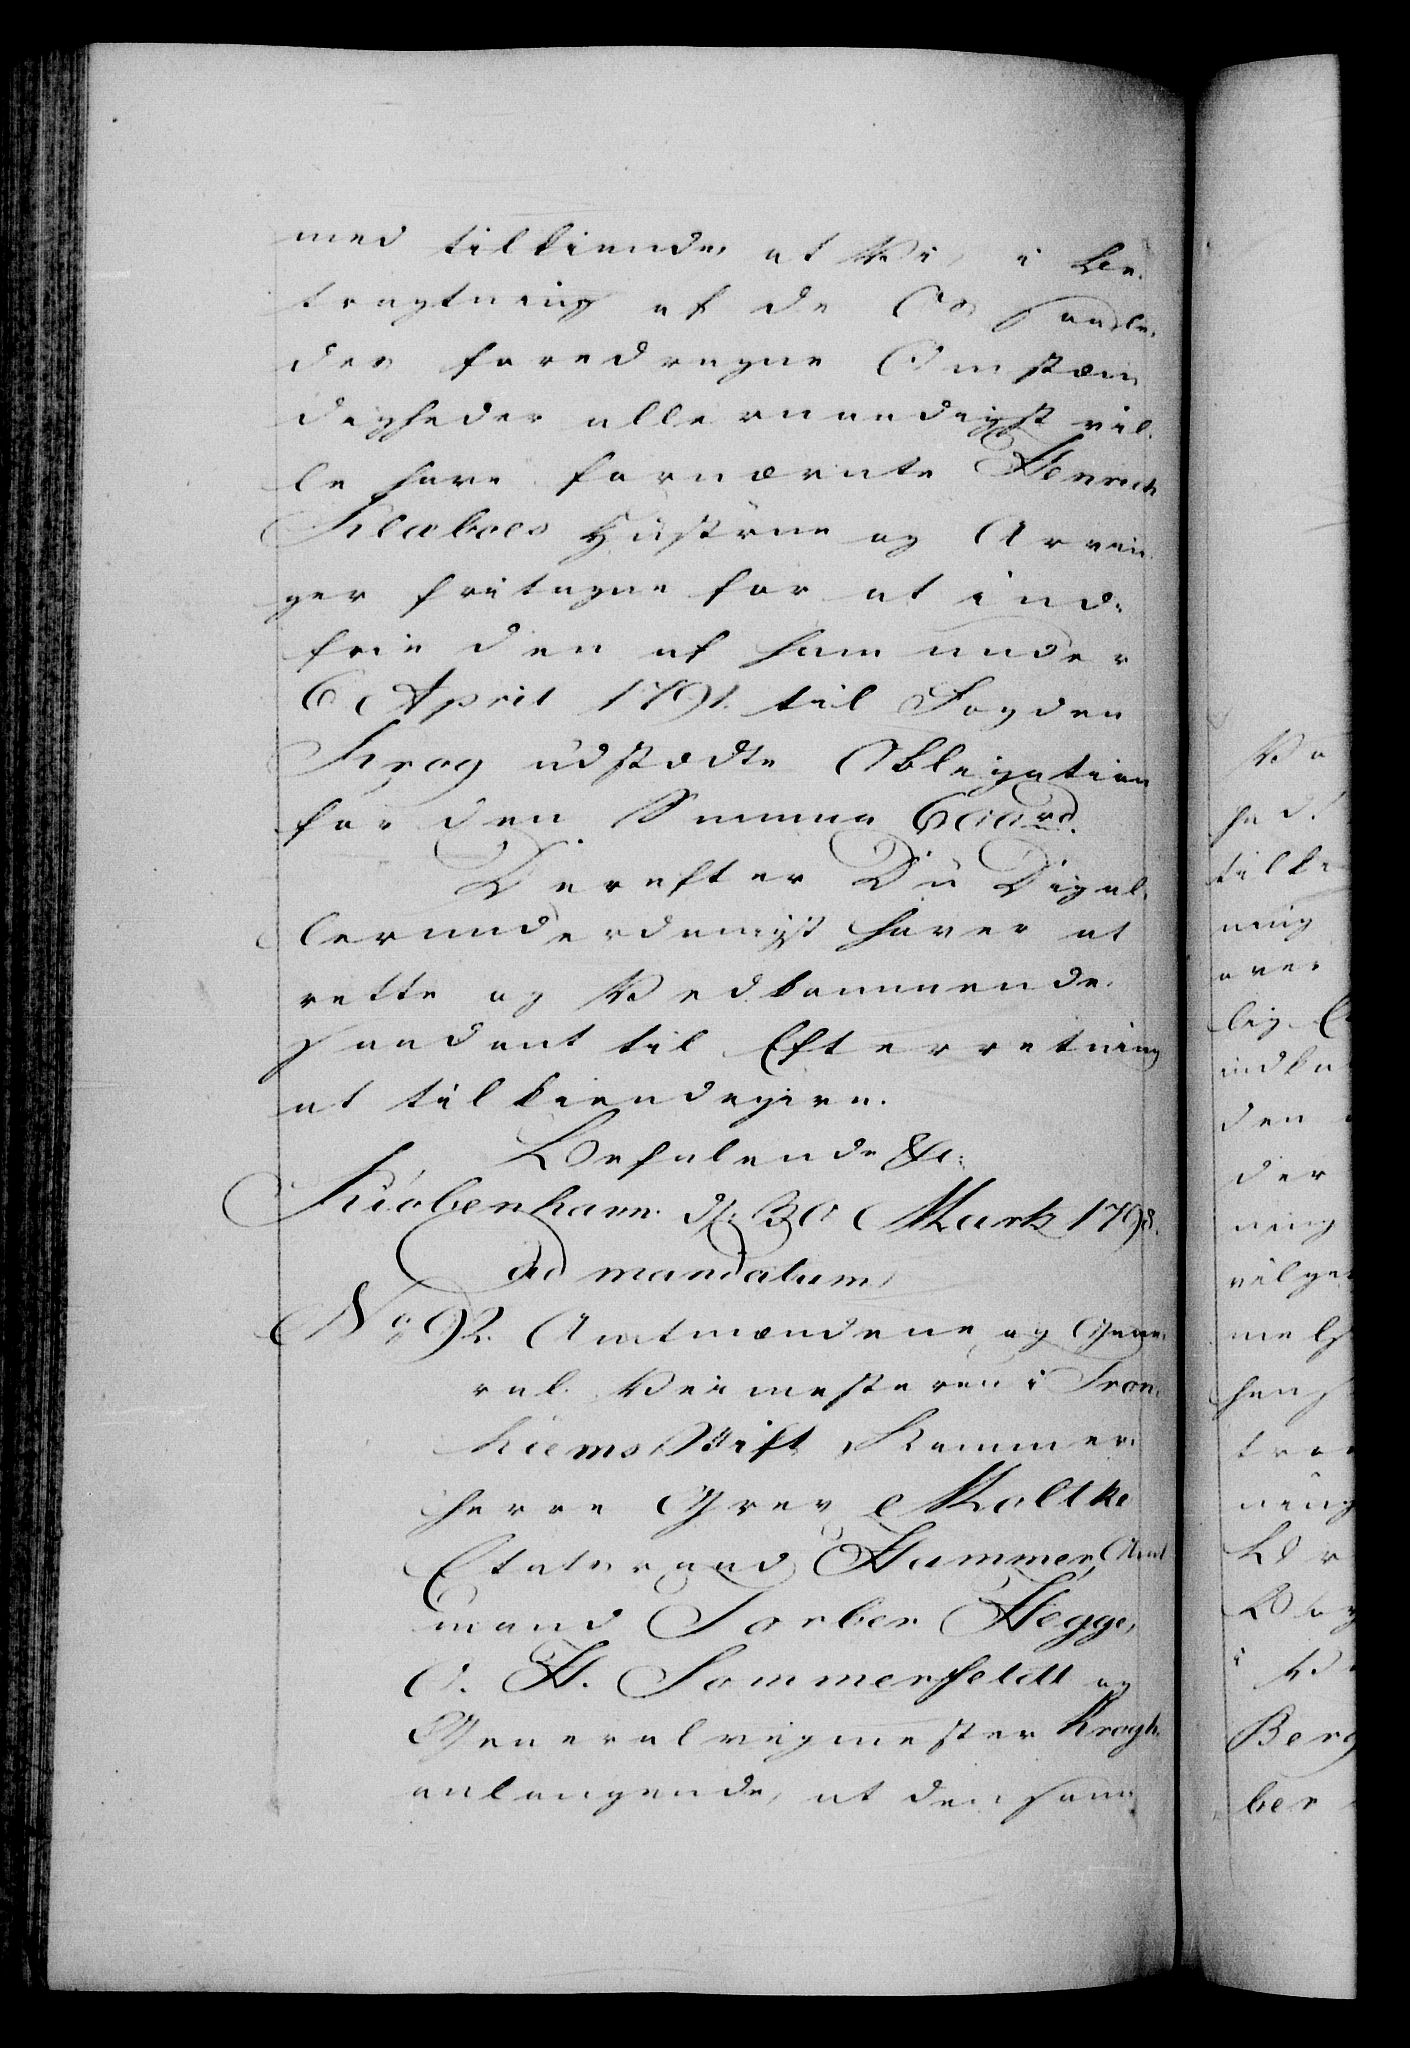 med tilkiende, at Vi, i be-
tragtning af de Os saale-
des foredragne Omstæn
digheder allernaadigst vil-
le have fornævnte Henrich
Klaboes Hustrue og Arvin-
ger fritagne for at ind-
frie den af ham under
6 April 1791. til Fogden
Krog udstædte Obligation
for den Summa 600 rd.
Derefter Du Dig al-
lerunderdanigst haver at
rette og Vedkommende
saadant til Efterretning
at tilkiendegive.
Befalende &c:
Kiøbenhavn d: 30 Martz 1798.
ad mandatum,
No 92. Amtmændene og Gene-
ral Veimesteren i Tron-
hiems Stift, Kammer-
herre Grev Moltke
Etatsraad Hammer, Amt
mand Torber Hegge,
O. H. Sommerfeldt og
Generalveymester Krogh
anlangende, at den samm
Va
hed.
tilke
ning
over
lig
indko
den
der
ning
vilge
mels
hens
tra
ning
Ber
ber